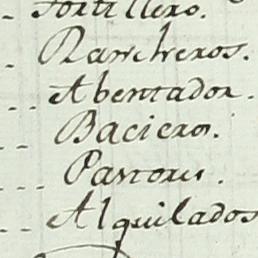 Fortillero.
- Rancheros.
- - Abentador.
Bacieros.
- - - Pastores.
- - - Alquilados